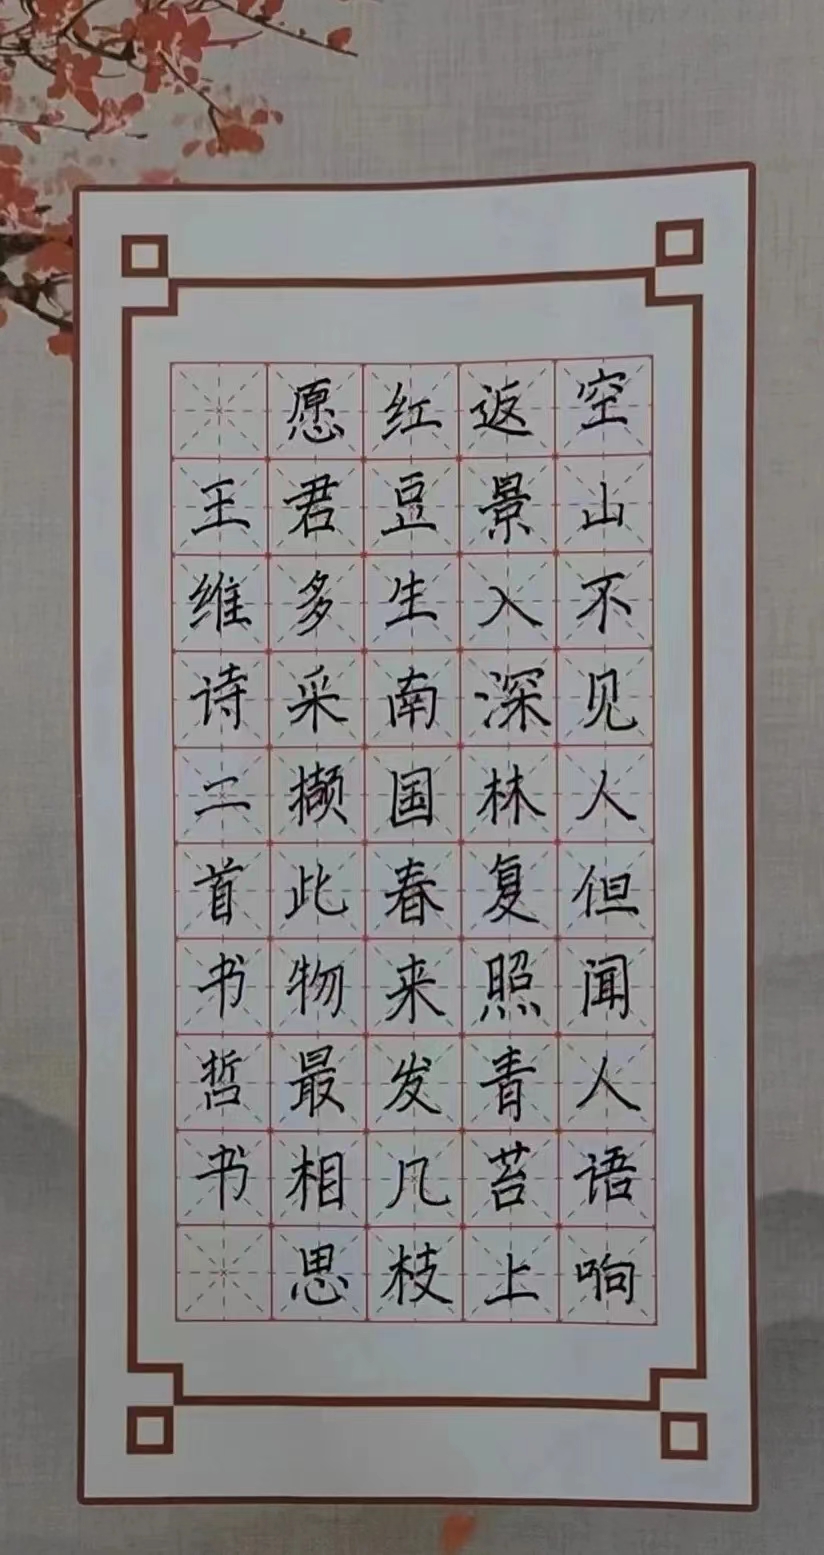 空山不见人但闻人语响
返景入深林复照青苔上
红豆生南国春来发几枝
愿君多采撷此物最相思
王维诗二首书哲书